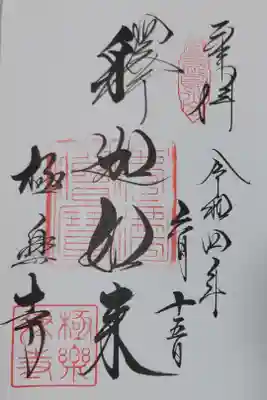 奉拝
令和四年
六月
十五日
釋迦如来
極楽寺
極樂寺